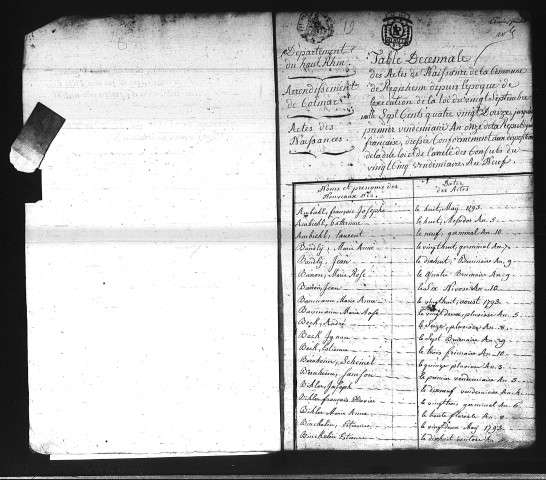 Departement
du haut Rhin
Arrondissement
de Colmar
Actes des
Naissances
Table Decennale
des Actes de Naissance de la Commune
de Regisheim depuis l'époque de
l'execution de la loi du vingt Septembre
mille Sept Cents quatre vingt Douze, jusqu'au
premier vendemiaire An onze de la Republique
française, dressée Conformement aux dispositions
de la dite loi et de l'arrêté des Consuls du
vingt cinq vendemiaire An Neuf.
Noms et prenoms des
Nouveaux Nés
Dates
des Actes
françois Josephe le huit, Maÿ 1793
Ambiehl, Catherine le huit, Messidor An. 5.
Ambiehl, Laurent le neuf, germinal An. 10.
Bandly, Marie Anne le vingt huit, germinal An. 7.
Bandly, Jean le dixhuit, Brumaire An. 9
Banon, Marie Rose le Quatre Brumaire An. 9
Jean le Six Nivose An. 10.
Baumann Marie Anne le vingt huit, aoust 1793.
Baumann Marie Rose le vingt deux, pluviose An. 5.
Beck, André le Seize, pluviose An. 8.
Beck Ignace le Sept Brumaire An. 9
Beck, Etienne le trois frimaire An. 10.
Bernheim, Schemel le quinze pluviose An. 5.
Bernheim, Samson le premier vendemiaire An. 5.
Bihler Joseph le dixneuf vendemiaire An. 4.
Bihler françois Xavier le vingt trois germinal An. 6
Bihler Marie Anne le trente floreal An. 8
Binckelin, Etienne le vingt deux Maÿ 1793.
Binckelin Etienne le dixhuit ventose An. 5